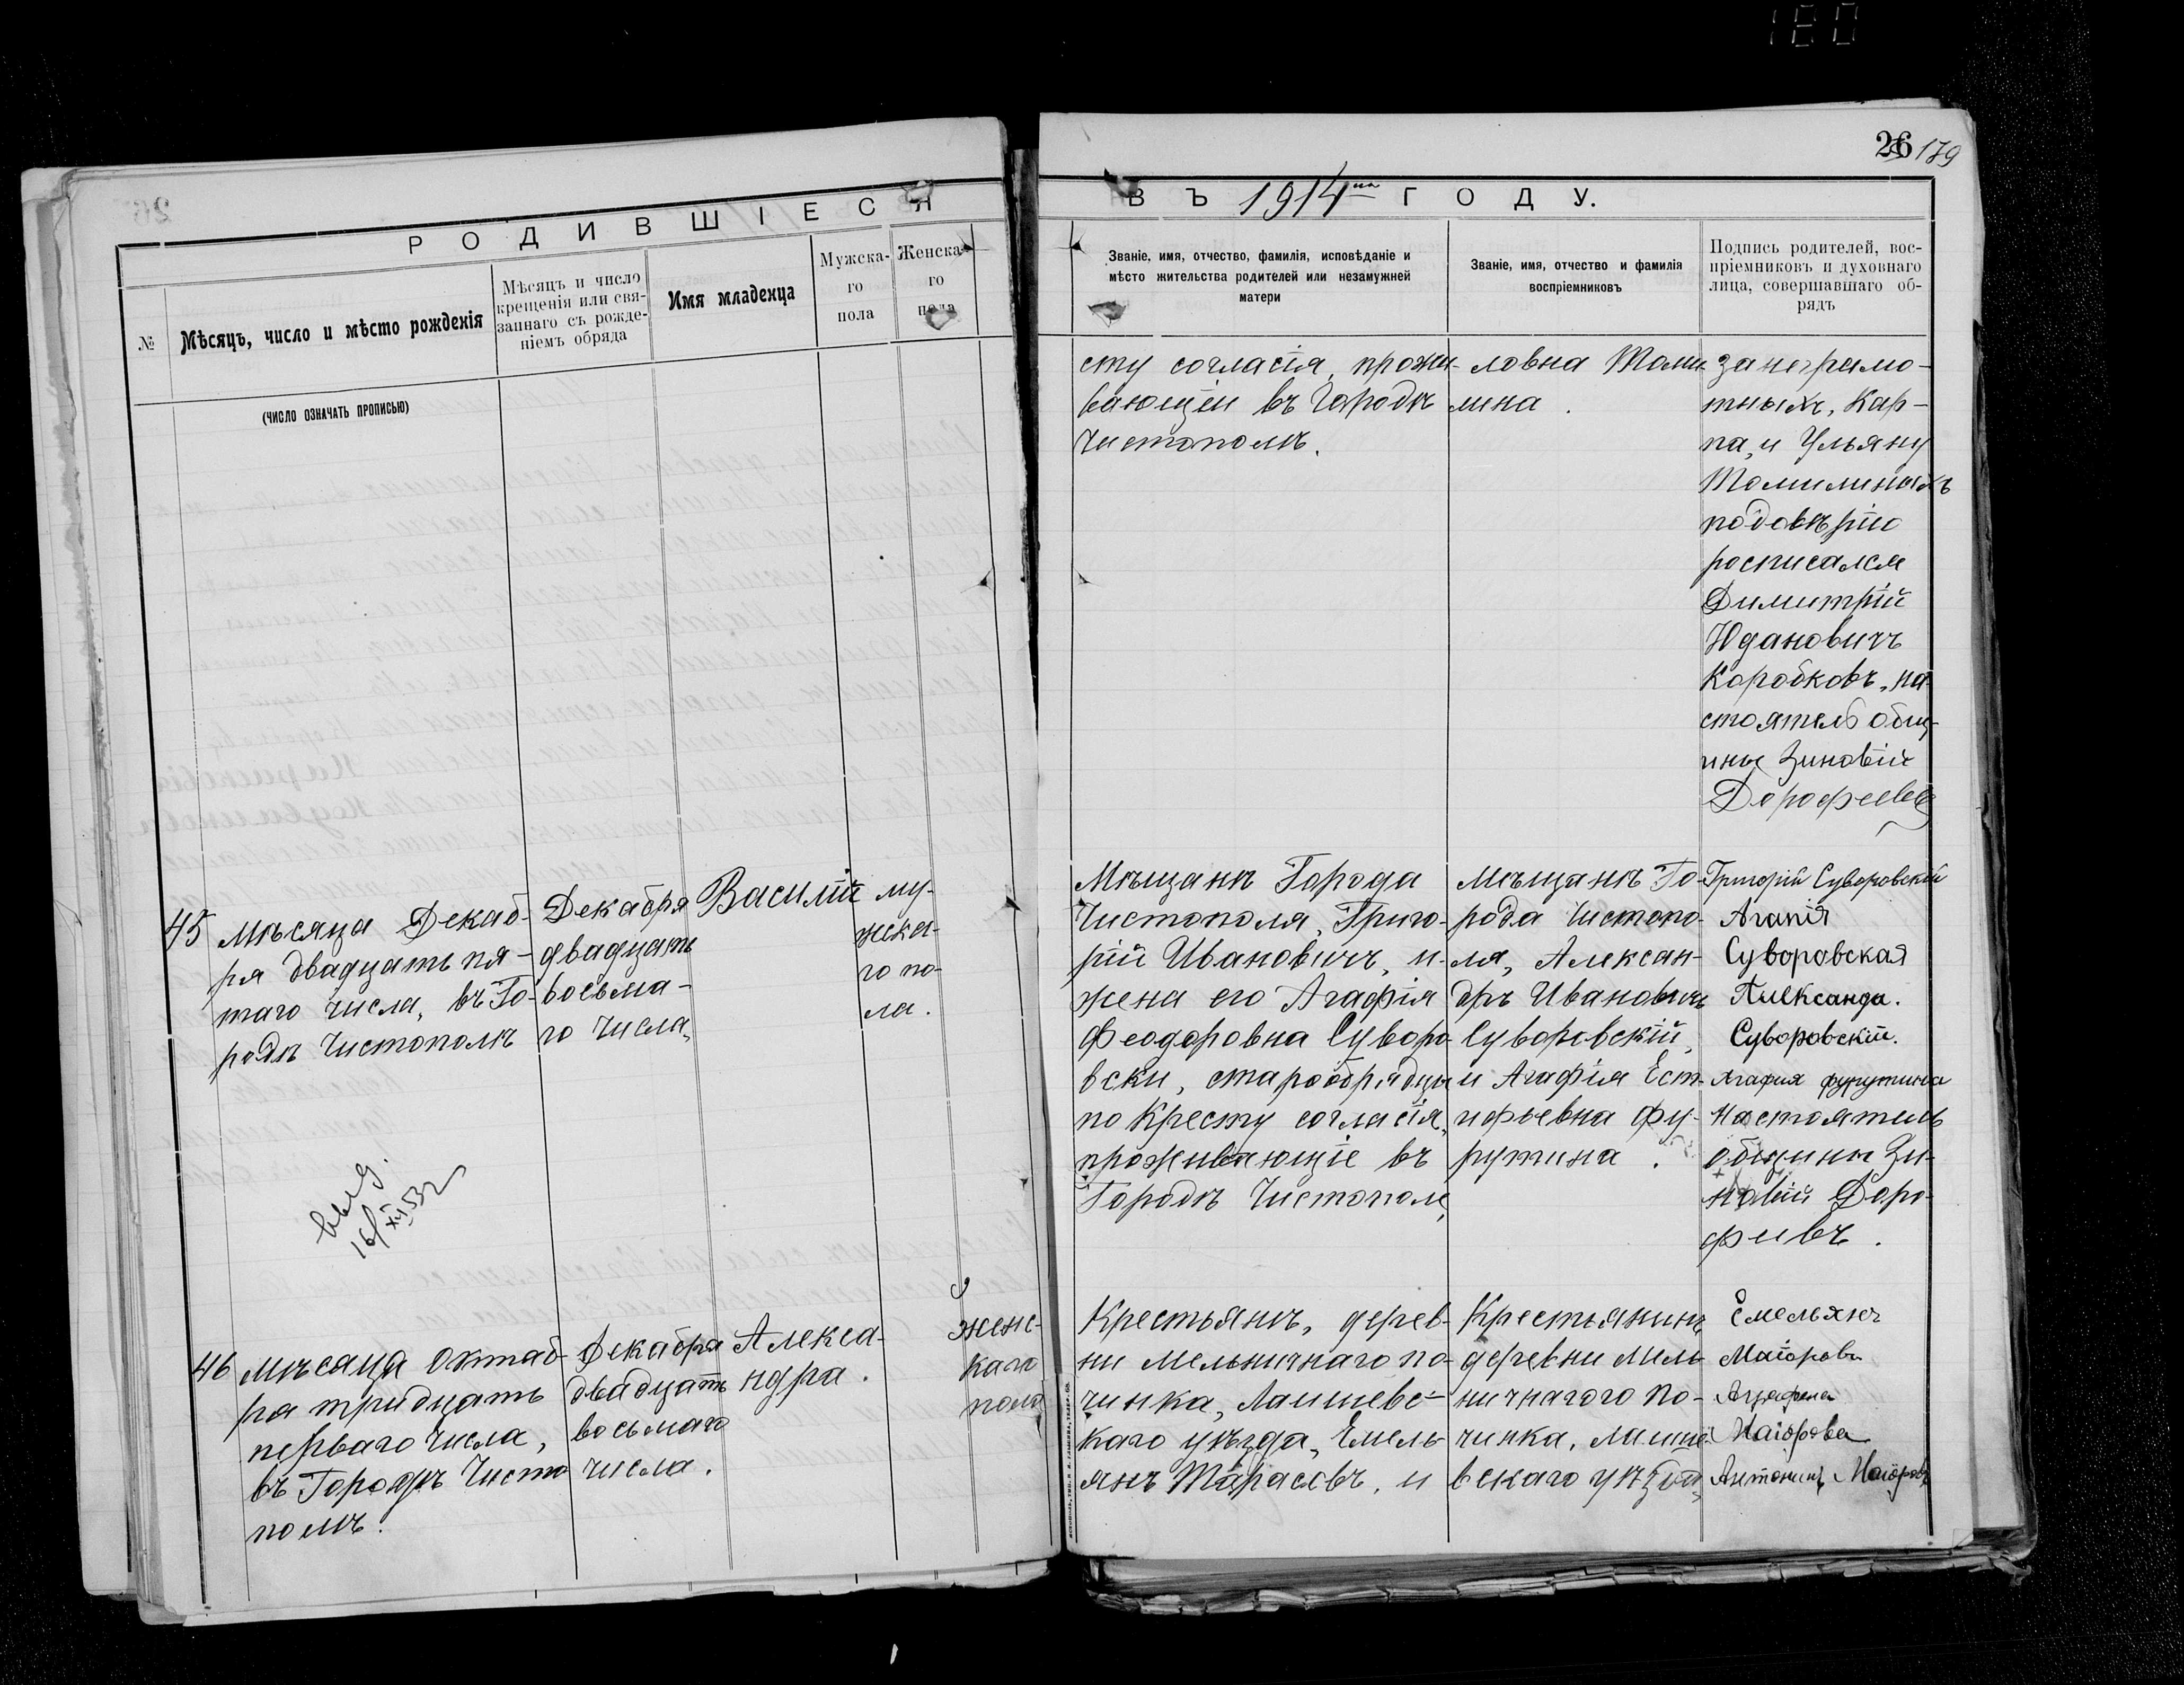 180
26 179
РОДИВШІЕСЯ
ВЪ 1914 ГОДУ.
№
Мѣсяцъ, число и мѣсто рожденія
(ЧИСЛО ОЗНАЧАТЬ ПРОПИСЬЮ)
Мѣсяцъ и число
крещенія или свя-
заннаго съ рожде-
ніемъ обряда
Имя младенца
Мужска-
го
пола
Женска-
го
пола
Званіе, имя, отчество, фамилія, исповѣданіе и
мѣсто жительства родителей или незамужней
матери
Званіе, имя, отчество и фамилія
воспріемниковъ
Подпись родителей, вос-
пріемниковъ и духовнаго
лица, совершавшаго об-
рядъ
сту согласія, прожи-
вающіи въ Городѣ
Чистополѣ.
ловна Томи-
лина.
за неграмо-
тныхъ, Кар-
па, и Ульяну
Томилиныхъ
подовѣрію
росписался
Димитрій
Юдановичъ
Коробковъ, на
стоятель общ-
ины Зиновій
Дорофеевъ
45
Мѣсяца Декаб-
ря двадцать пя-
таго числа, въ Го-
родѣ Чистополѣ
Декабря
двадцать
восьма-
го числа,
Василій
му-
жска-
го по-
ла.
Мѣщанѣ Города
Чистополя, Григо-
рій Ивановичъ, и
жена его Агафія
Феодоровна Суворо-
вски, старообрядцы
по Кресту согласія,
проживающіе въ
Городѣ Чистополѣ,
Мѣщанѣ Го-
рода Чистопо-
ля, Алексан-
дръ Ивановичъ
Суворовскій,
и Агафія Ест-
ифьевна Фу-
рутина.
Григорій Суворовскій
Агапія
Суворовская
Александа.
Суворовскій.
Агафия фурутина
Настоятель
общины Зи-
новій Доро-
феивъ.
16/XII 53г
46
Мѣсяца Октаб-
ра тридцать
перваго числа,
въ Городѣ Чисто
полѣ.
Декабря
двадцать
восьмаго
числа.
Алекса-
ндра.
женс-
каго
пола
Крестьянѣ, дерев-
ни Мельничнаго по-
чинка, Лаишевс-
каго уѣзда, Емель-
янъ Тарасовъ, и
Крестьянинъ
деревни Мель
ничнагого по-
чинка, Лаише-
вскаго уѣзда,
Емельянъ
Маіоровъ
Аграфена
Маіорова
Антонинъ Маіоровъ